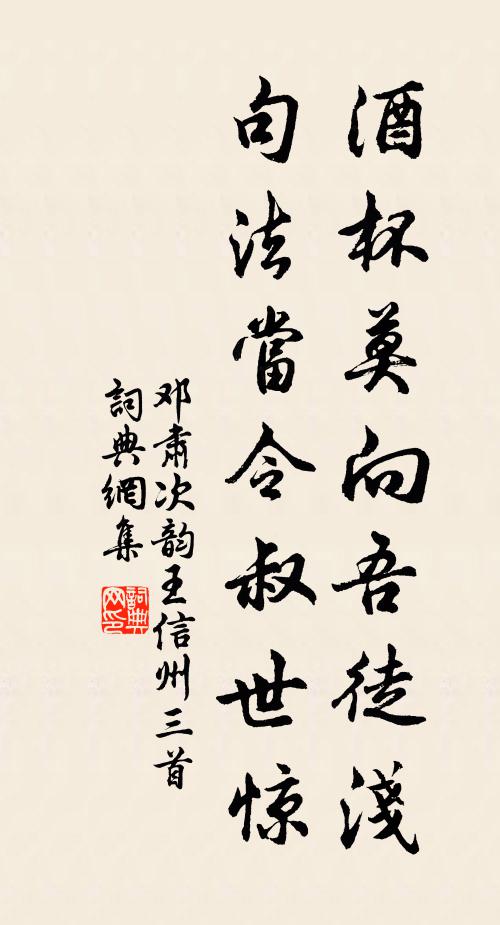 酒杯莫向吾徒淺
句法當令叔世惊
邓肅次韵王信州三首
詞典網集
詞典网印